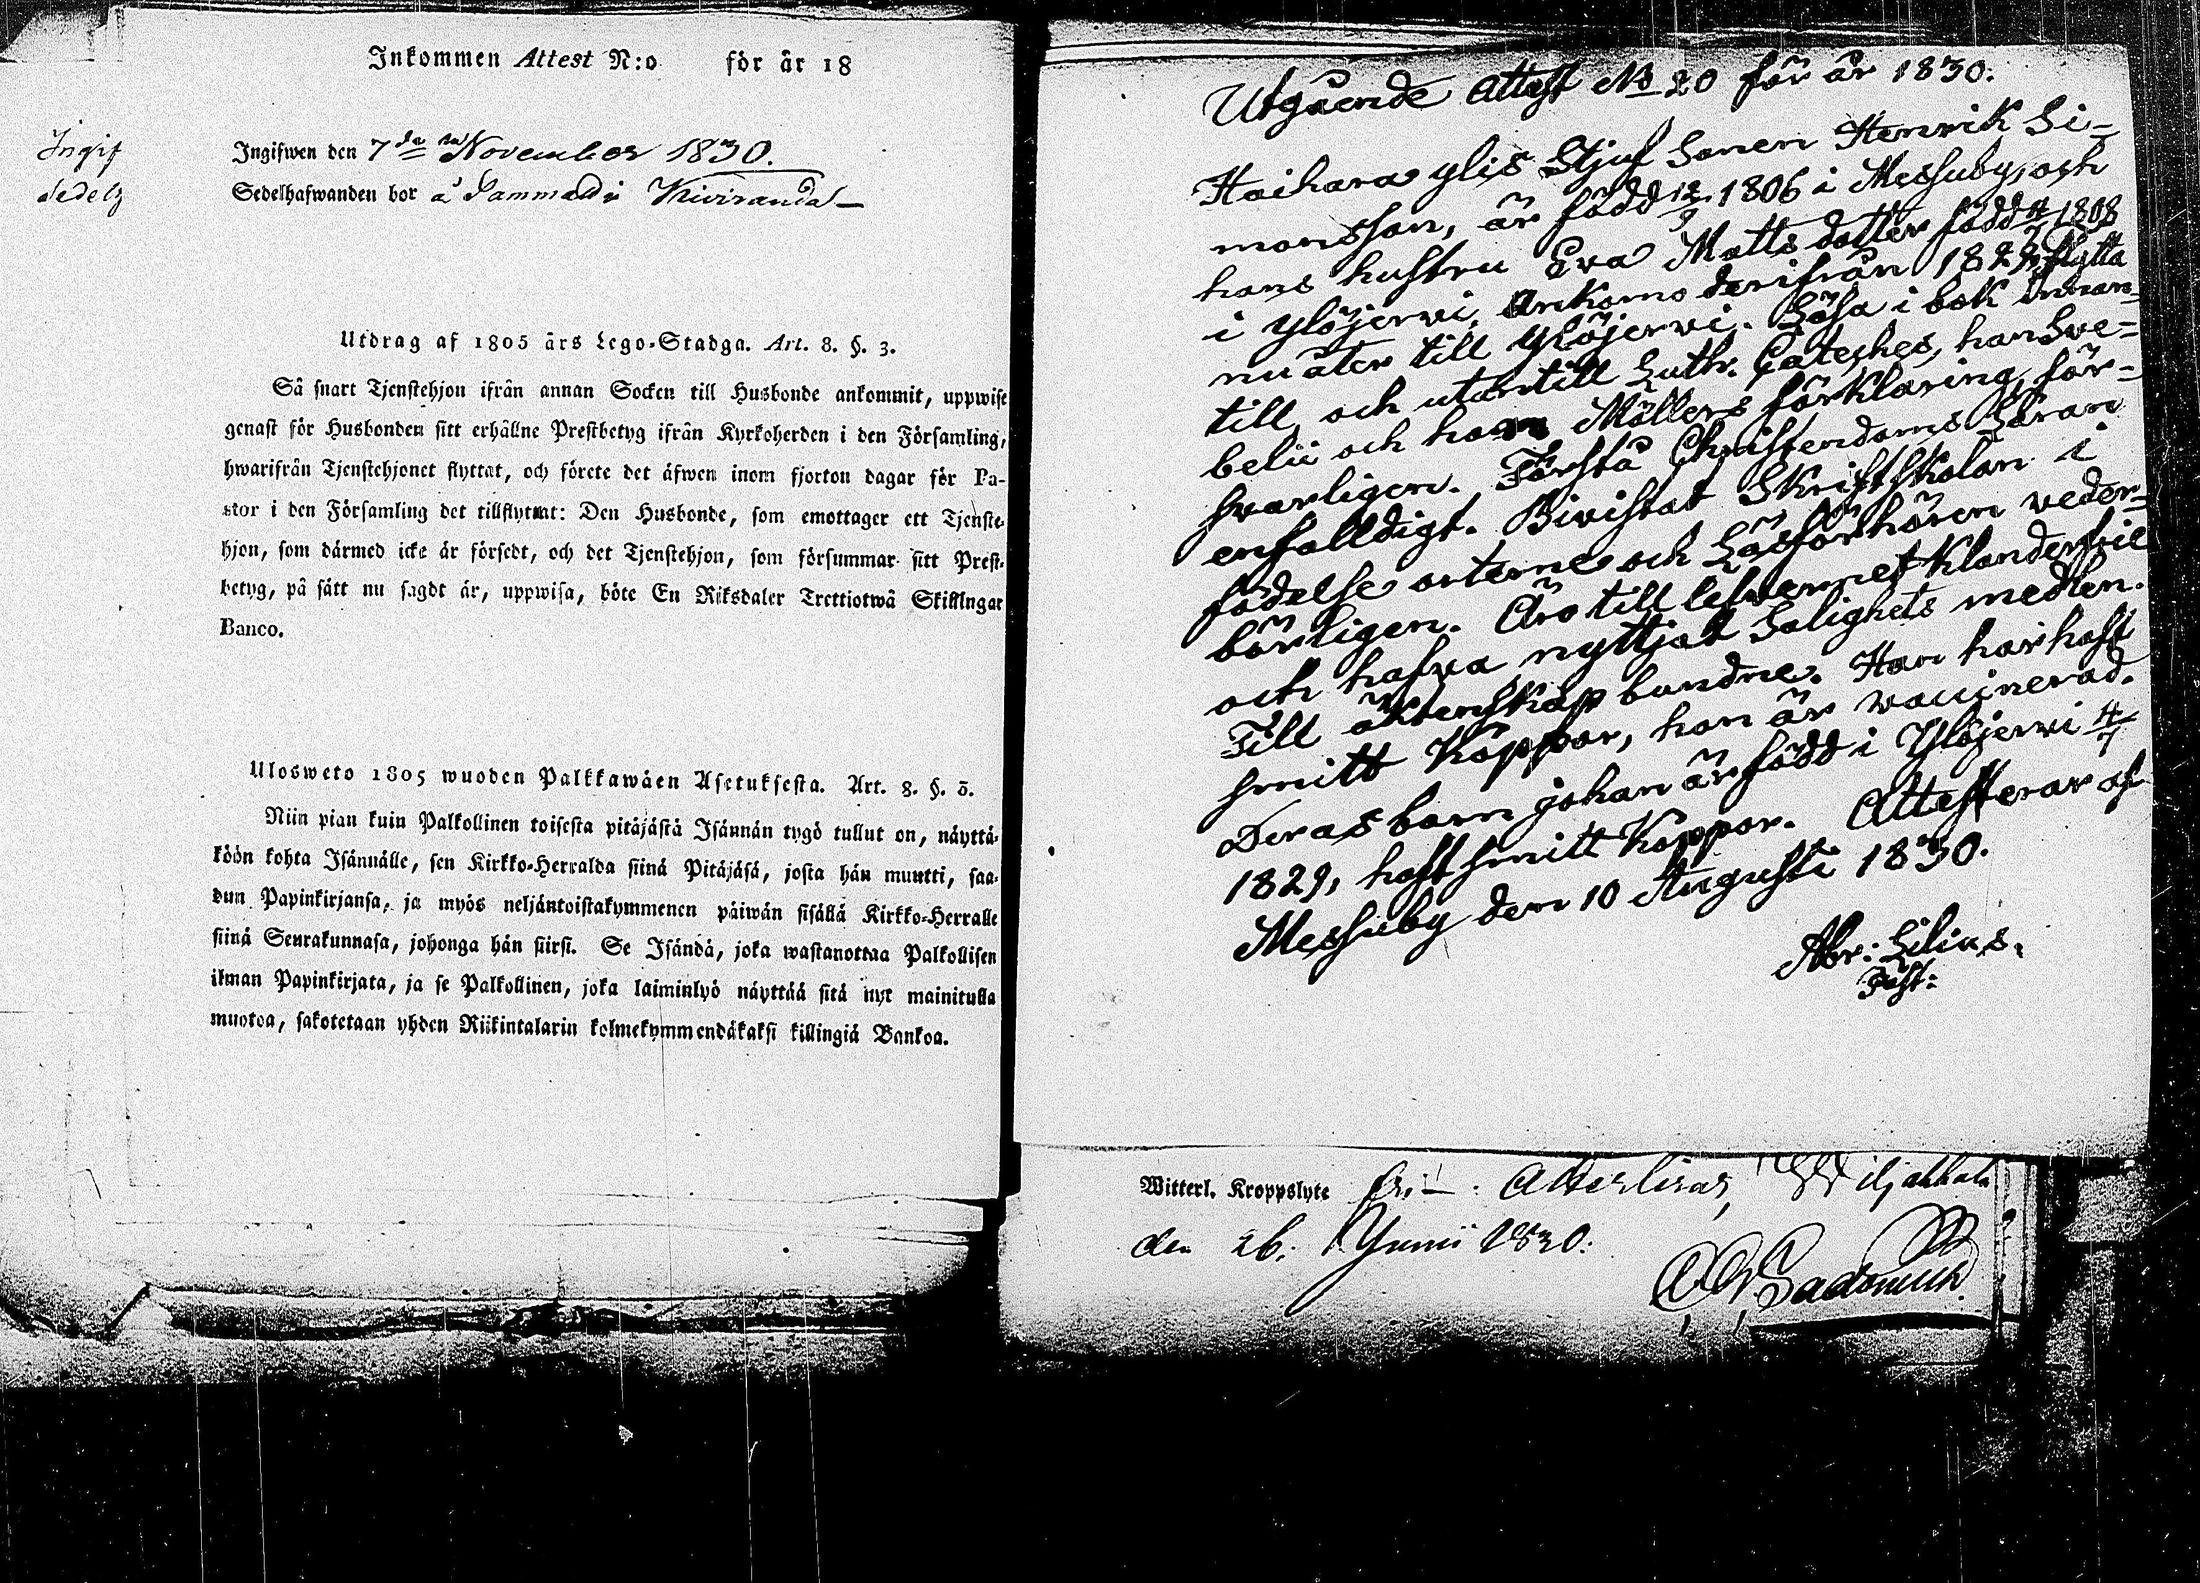 Inkommen Attest N:o för år 18
Ingif
Sedelh
Ingifwen den 7de November 1830.
Sedelhafwanden bor å Sammadi Kiviranda
Utdrag af 1805 års Lego-Stadga. Art. 8. §. 3.
Så snart Tjenstehjon ifrån annan Socken till Husbonde ankommit, uppwise
genast för Husbonden sitt erhållne Prestbetyg ifrån Kyrkoherden i den Församling,
hwarifrån Tjenstehjonet flyttat, och förete det äfwen inom fjorton dagar för Pa-
stor i den Församling det tillflyttat: Den Husbonde, som emottager ett Tjenste-
hjon, som därmed icke är försedt, och det Tjenstehjon, som försummar sitt Prest-
betyg, på sätt nu sagdt är, uppwisa, böte En Riksdaler Trettiotwå Skillngar
Banco.
Ulosweto 1805 wuoden Palkkawäen Asetuksesta. Art. 8. §. 3.
Niin pian kuin Palkollinen toisesta pitäjästä Isännän tygö tullut on, näyttä-
köön kohta Isännälle, sen Kirkko-Herralda siinä Pitäjäsä, josta hän muutti, saa-
dun Papinkirjansa, ja myös neljäntoistakymmenen päiwän sisällä Kirkko-Herralle
siinä Seurakunnasa, johonga hän siirsi. Se Isändä, joka wastanottaa Palkollisen
ilman Papinkirjata, ja se Palkollinen, joka laiminlyö näyttää sitä nyt mainitulla
muotoa, sakotetaan yhden Riikintalarin kolmekymmendäkaksi killingiä Bankoa.
Utgående Attest No 20 för år 1830.
Haihara ylis Stjuf Sonen Henrik Si-
monsson, är född 12/9 1806 i Messuby, och
hans hustru Eva Matts dotter född 4/7 1808
i Ylöjervi, Ankomo derifrån 1829, flytta
nu åter till Ylöjervi. Läsa i bok innan-
till, och utantill Luth. Cateches, han Sve-
belii och hon Möllers förklaring, för-
svarligen. Förstå Christendoms Läran
enfalldigt. Bivistat Skriftskolan i
födelse orterne och Läsförhören veder-
börligen. Äro till lefvernet Klanderfrie
och hafva nyttjat Salighets medlen.
Till äktenskap bundne. Han har haft
smitt Koppor, hon är vaccinerad.
Deras barn johan är född i Ylöjervi 4/7
1829, haft smitt Koppor. Attesterar af
Messuby den 10 Augusti 1830.
Abr: Lilius.
Past:
Witterl. Kroppslyte fri. Attesteras,
den 26. Junii 1830.